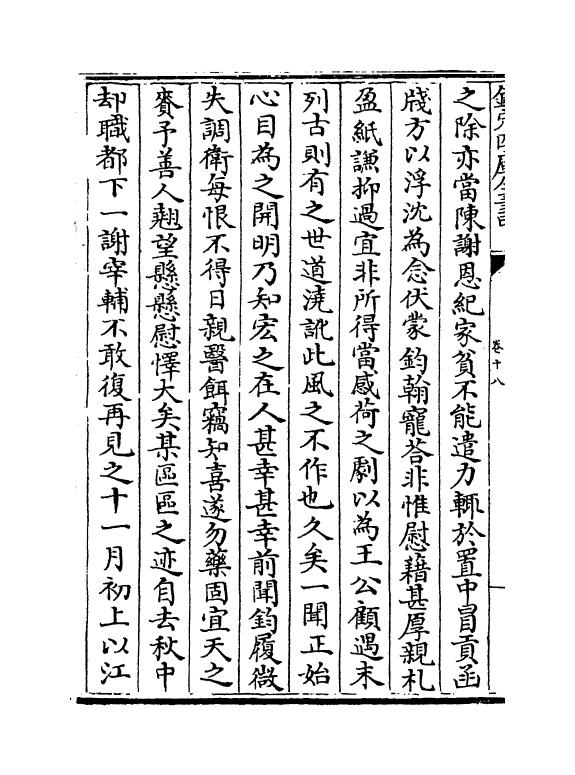 欽定四庫全書
卷十八
之除亦當陳謝恩紀家貧不能遣力輒於置中冒貢函
牋方以浮沈為念伏蒙鈞翰寵答非惟慰藉甚厚親札
盈紙謙抑過宜非所得當感荷之劇以為王公顧遇末
列古則有之世道澆訛此風之不作也久矣一聞正始
心目為之開明乃知宏之在人甚幸甚幸前聞鈞履微
失調衛每恨不得日親醫餌竊知喜遂勿藥固宜天之
賚予善人翹望懸懸慰懌大矣某區區之迹自去秋中
却職都下一謝宰輔不敢復再見之十一月初上以江